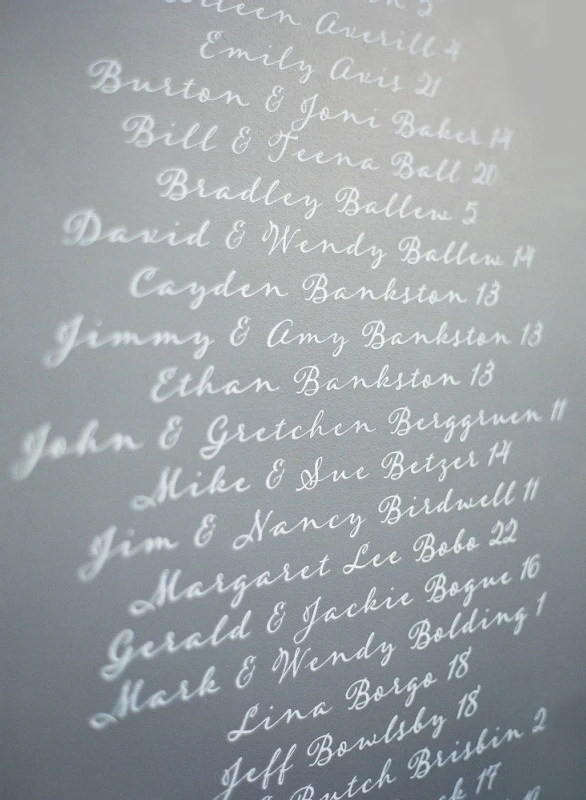 Averill 4
Emily Avis 21
Burton & Joni Baker 14
Bill & Teena Ball 20
Bradley Ballew 5
David & Wendy Ballew 14
Cayden Bankston 13
Jimmy & Amy Bankston 13
Ethan Bankston 13
John & Gretchen Berggruen 11
Mike & Sue Betzer 14
Jim & Nancy Birdwell 11
Margaret Lee Bobo 22
Gerald & Jackie Bogue 16
Mark & Wendy Bolding 1
Lina Borgo 18
Jeff Bowlsby 18
& Butch Brisbin 2
17